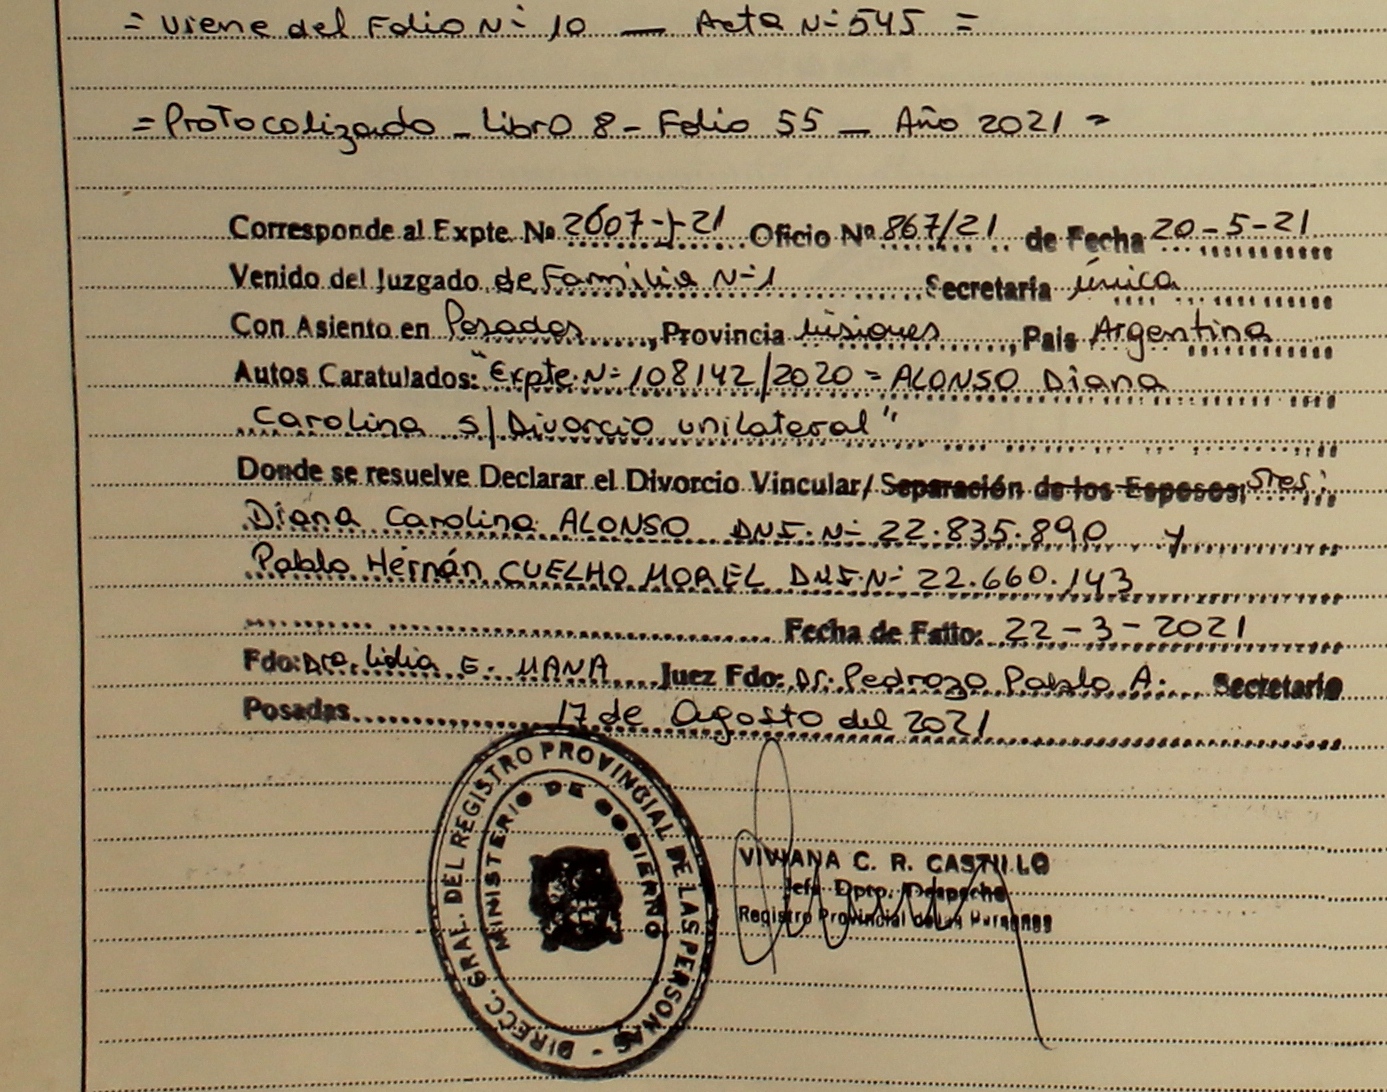 = Viene del Folio Nº 10 — Acta Nº 545 =
= Protocolizado - Libro 8 - Folio 55 — Año 2021 =
Corresponde al Expte. Nº 2607-J-21 Oficio Nº 867/21 de Fecha 20-5-21
Venido del Juzgado de Familia Nº 1 Secretaría única
Con Asiento en Posadas, Provincia Misiones, País Argentina
Autos Caratulados: "Expte. Nº 108142/2020 = ALONSO Diana
Carolina s/Divorcio unilateral"
Donde se resuelve Declarar el Divorcio Vincular/ Separación de los Esposos: Sres:
Diana Carolina ALONSO DNI. Nº 22.835.890 y
Pablo Hernán CUELHO MOREL DNI. Nº 22.660.143
Fecha de Fallo: 22-3-2021
Fdo: Dra. Lidia E. MANA Juez Fdo: Dr. Pedrozo Pablo A. Secretario
Posadas 17 de Agosto del 2021
DIRECC. GRAL. DEL REGISTRO PROVINCIAL DE LAS PERSONAS -
MINISTERIO DE GOBIERNO
VIVIANA C. R. CASTILLO
Jefa Dpto. Despacho
Registro Provincial de las Personas